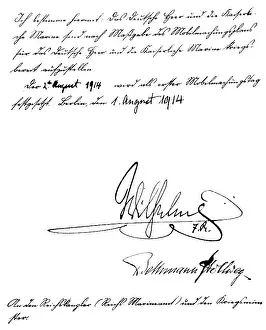 Ich bestimme hiermit: Das Deutsche Heer und die Kaiserli-
che Marine sind nach Maßgabe des Mobilmachungsplans
für das Deutsche Heer und die Kaiserliche Marine kriegs-
bereit aufzustellen.
Der 2te August 1914 wird als erster Mobilmachungstag
festgesetzt. Berlin, den 1. August 1914
Wilhelm
I.R.
Bethmann Hollweg
An den Reichskanzler (Reichs Marineamt) und den Kriegsmini-
ster.